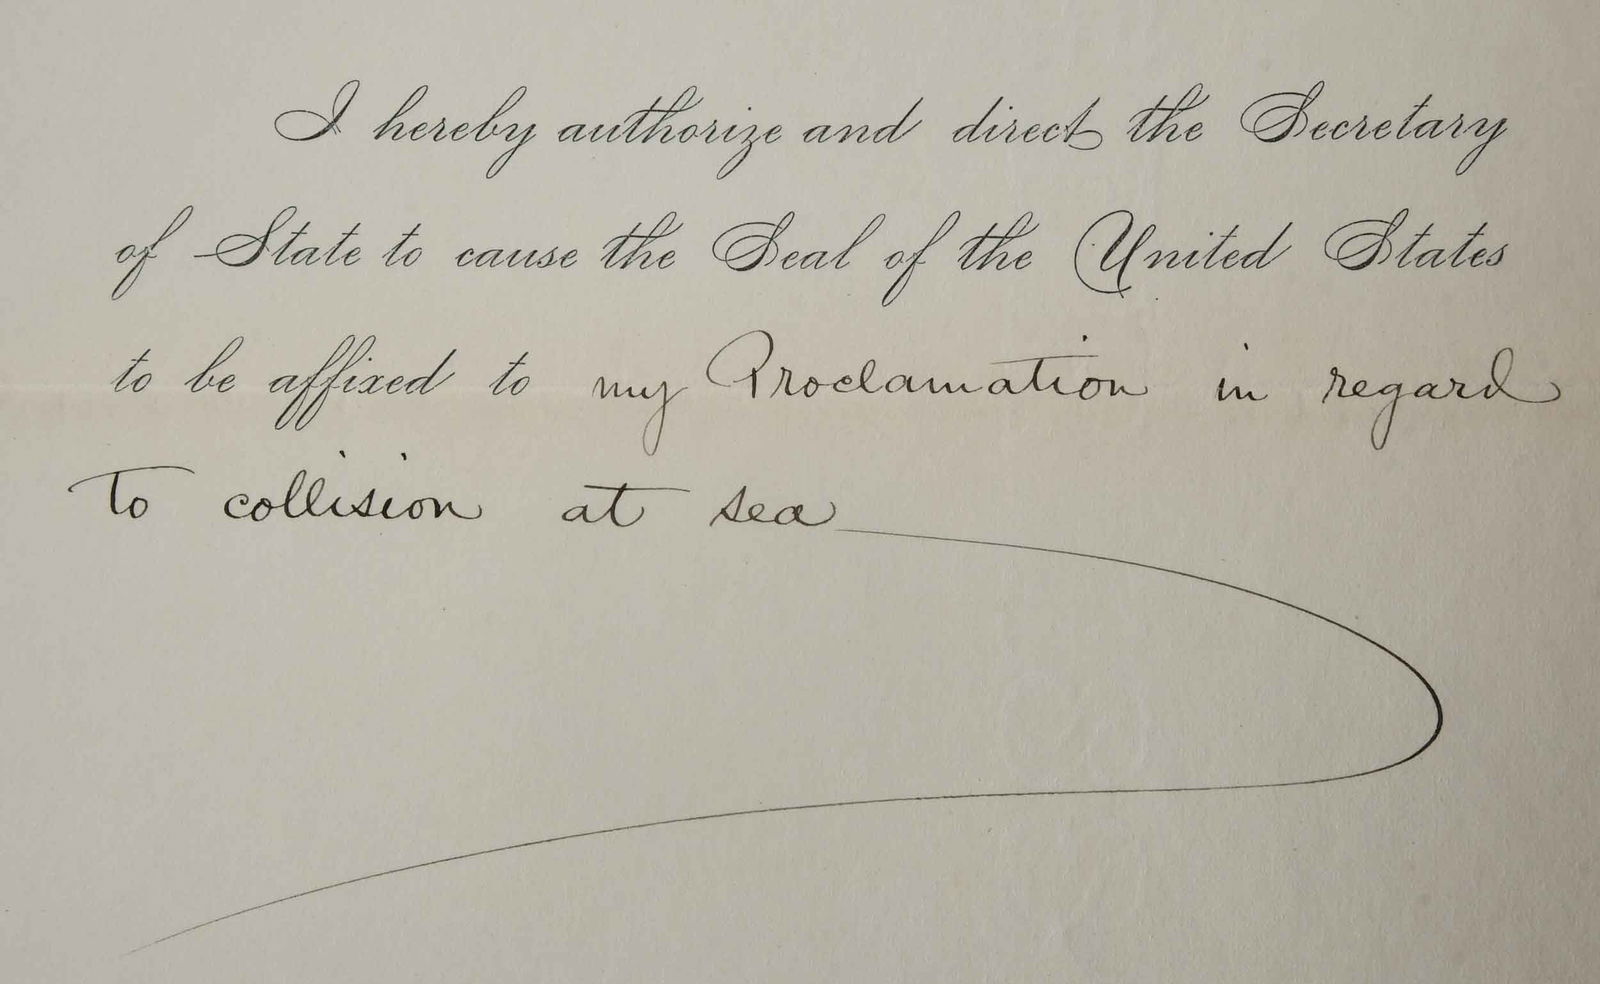 I hereby authorize and direct the Secretary
of State to cause the Seal of the United States
to be affixed to my Proclamation in regard
to collision at sea